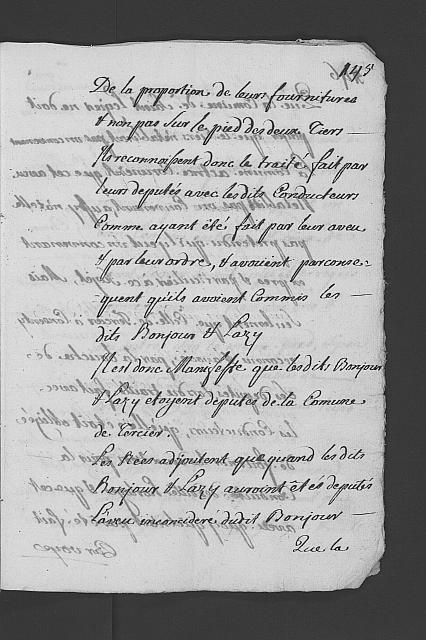 145
De la proportion de leurs fournitures
& non pas sur le pied des deux Tiers
Ils reconnoissent donc le traité fait par
leurs deputés avec les dits Conducteurs
Comme ayant été fait par leur aveu
& par leur ordre, & avouent par conse=
=quent qu'ils avoient Commis les
dits Bonjour & Lazy
Il est donc Manifeste que les dits Bonjour
& Lazy etoyent deputés de la Comune
de Tercier.
Les Rées adjoutent que quand les dits
Bonjour & Lazy auroint etes deputés
L'aveu inconsideré dudit Bonjour
Que la